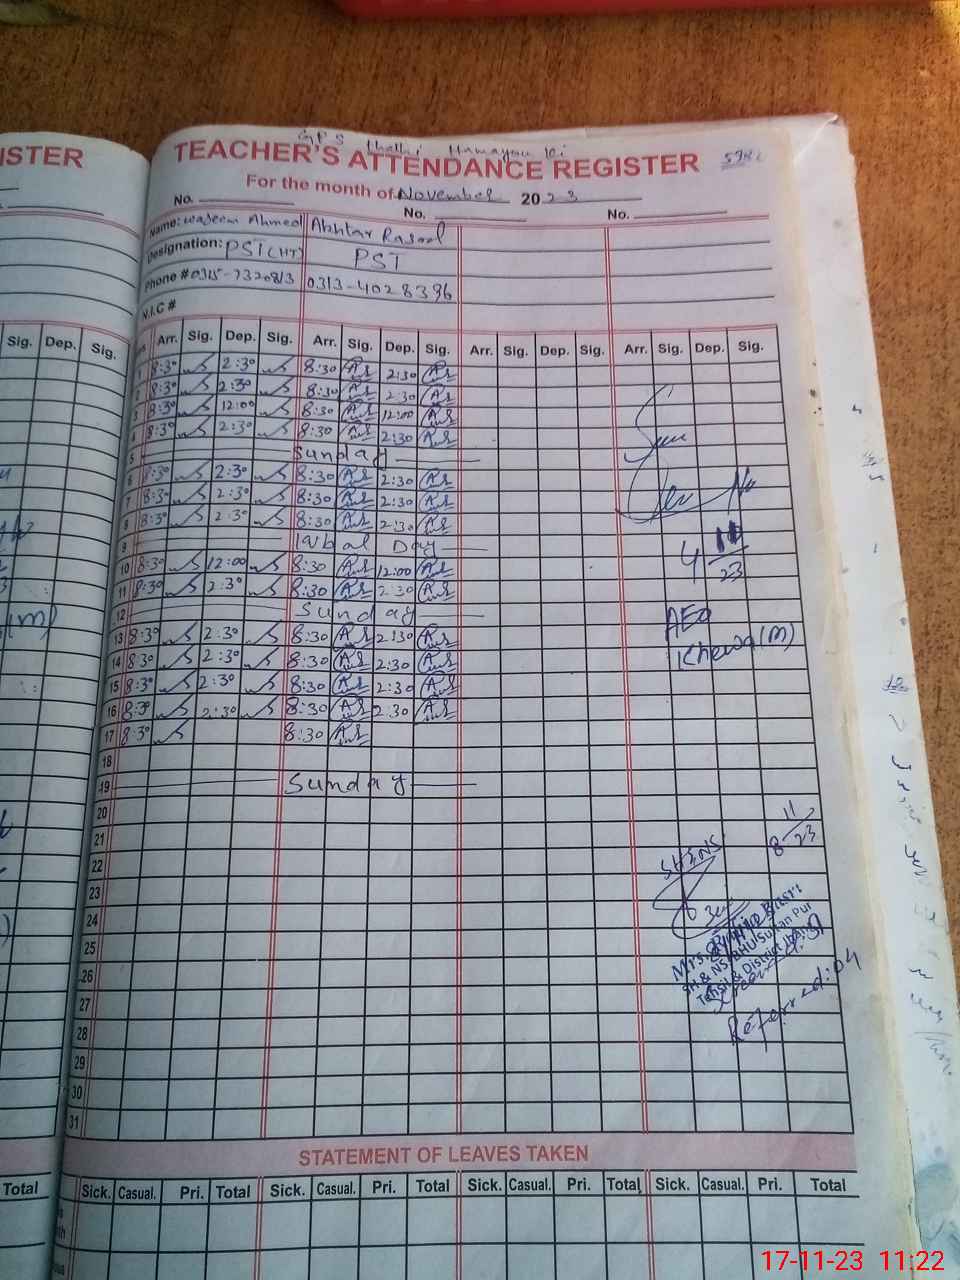 GPS Thathi Hamayou Ki
ISTER
TEACHER'S ATTENDANCE REGISTER
For the month of November 2023
No. No. No.
Name: Waseem Ahmed Akhtar Rasool
Designation: PST(HT) PST
Phone # 0315-7320813 0313-4028396
N.I.C #
Sig. Dep. Sig. Arr. Sig. Dep. Sig. Arr. Sig. Dep. Sig. Arr. Sig. Dep. Sig. Arr. Sig. Dep. Sig.
1 8:30 2:30 8:30 2:30
2 8:30 2:30 8:30 2:30
3 8:30 12:00 8:30 12:00
4 8:30 2:30 8:30 2:30
5 Sunday
6 8:30 2:30 8:30 2:30
7 8:30 2:30 8:30 2:30
8 8:30 2:30 8:30 2:30
9 Iqbal Day
10 8:30 12:00 8:30 12:00
11 8:30 2:30 8:30 2:30
12 Sunday
13 8:30 2:30 8:30 2:30
14 8:30 2:30 8:30 2:30
15 8:30 2:30 8:30 2:30
16 8:30 2:30 8:30 2:30
17 8:30 8:30
18
19 Sunday
20
21
22
23
24
25
26
27
28
29
30
31
4 11
23
AEO
Khewa (M)
11
8 23
SH&NS
SH & NS BHU Sultan Pur
Tehsil & District
Referred: 04
STATEMENT OF LEAVES TAKEN
Total Sick. Casual. Pri. Total Sick. Casual. Pri. Total Sick. Casual. Pri. Total Sick. Casual. Pri. Total
17-11-23 11:22